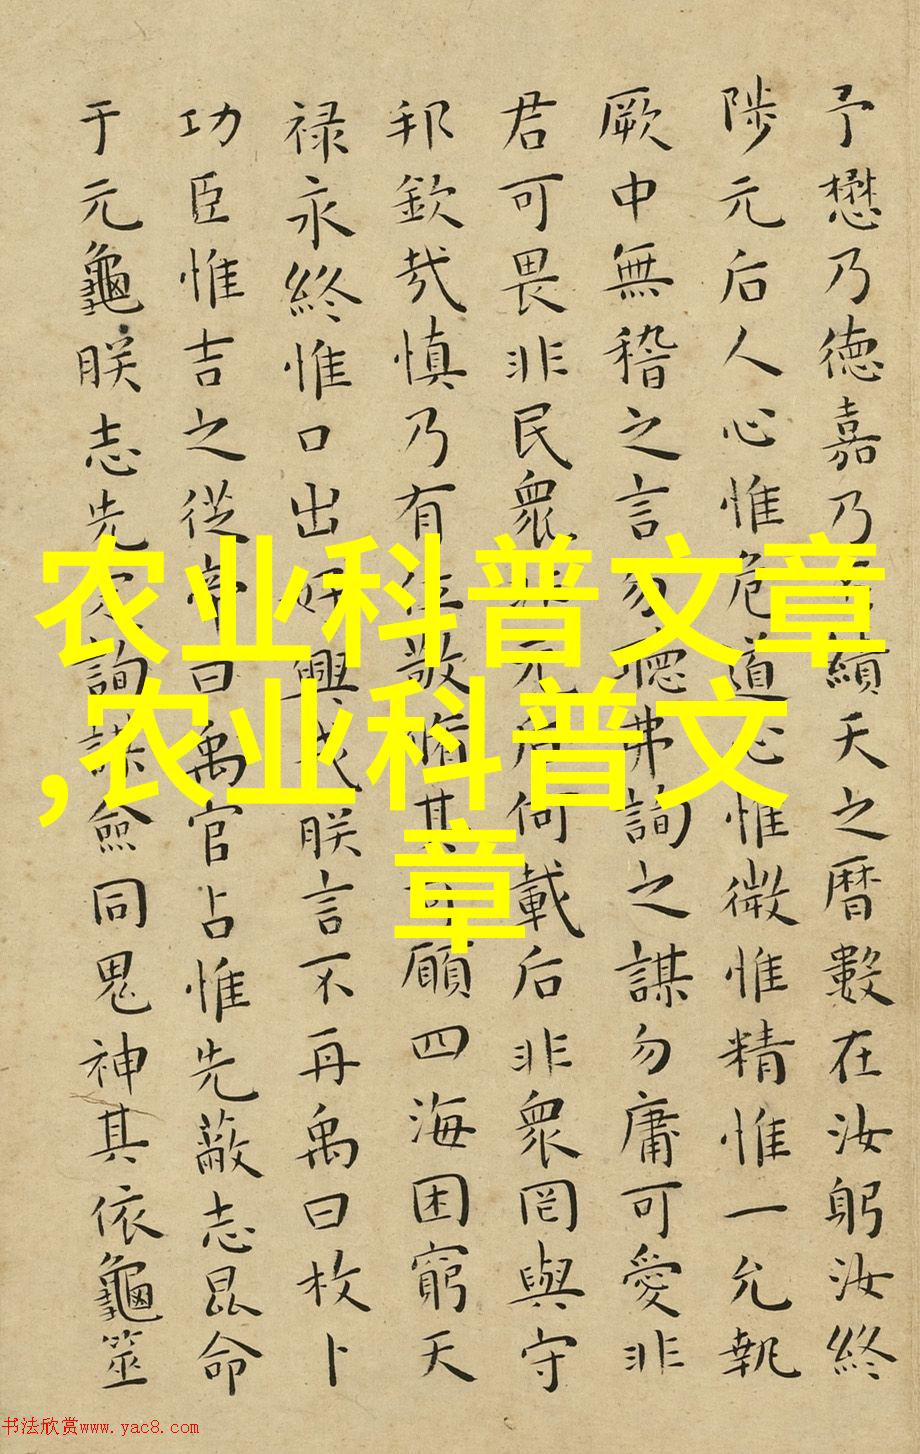 予懋乃德嘉乃丕績天之曆數在汝躬汝終
陟元后人心惟危道心惟微惟精惟一允執
厥中無稽之言勿聽弗詢之謀勿庸可愛非
君可畏非民衆非元后何載后非衆罔與守
邦欽哉慎乃有位敬脩其可願四海困窮天
禄永終惟口出好興戎朕言不再禹曰枚卜
功臣惟吉之從帝曰禹官占惟先蔽志昆命
于元龜朕志先定詢謀僉同鬼神其依龜筮
农业科普文章
,农业科普文
章
书法欣赏www.yac8.com